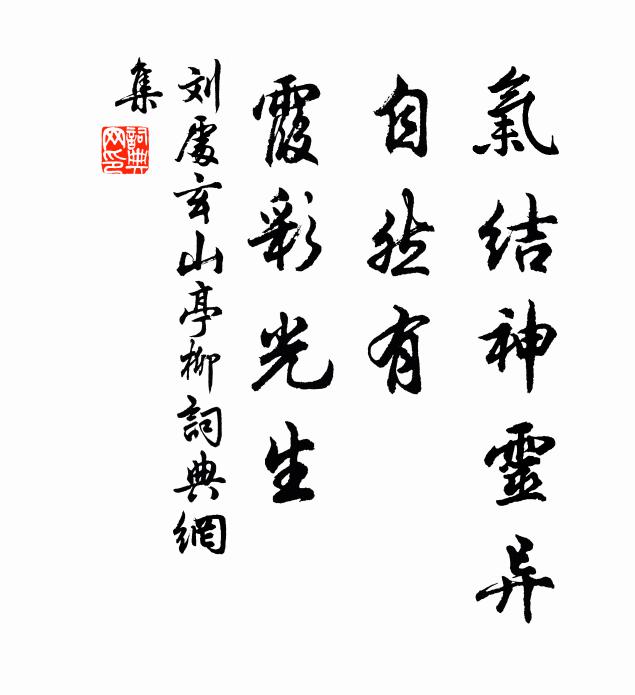 氣結神靈异
自然有
霞彩光生
刘處玄山亭柳詞典網
集
詞典
网印